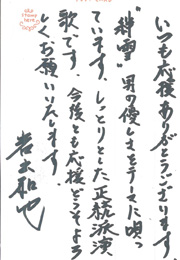 いつも応援ありがとうございます。
"絆雪" 男の優しさをテーマに唄っ
ています。しっとりとした正統派演
歌です。今後とも応援どうぞよろ
しくお願いいたします。